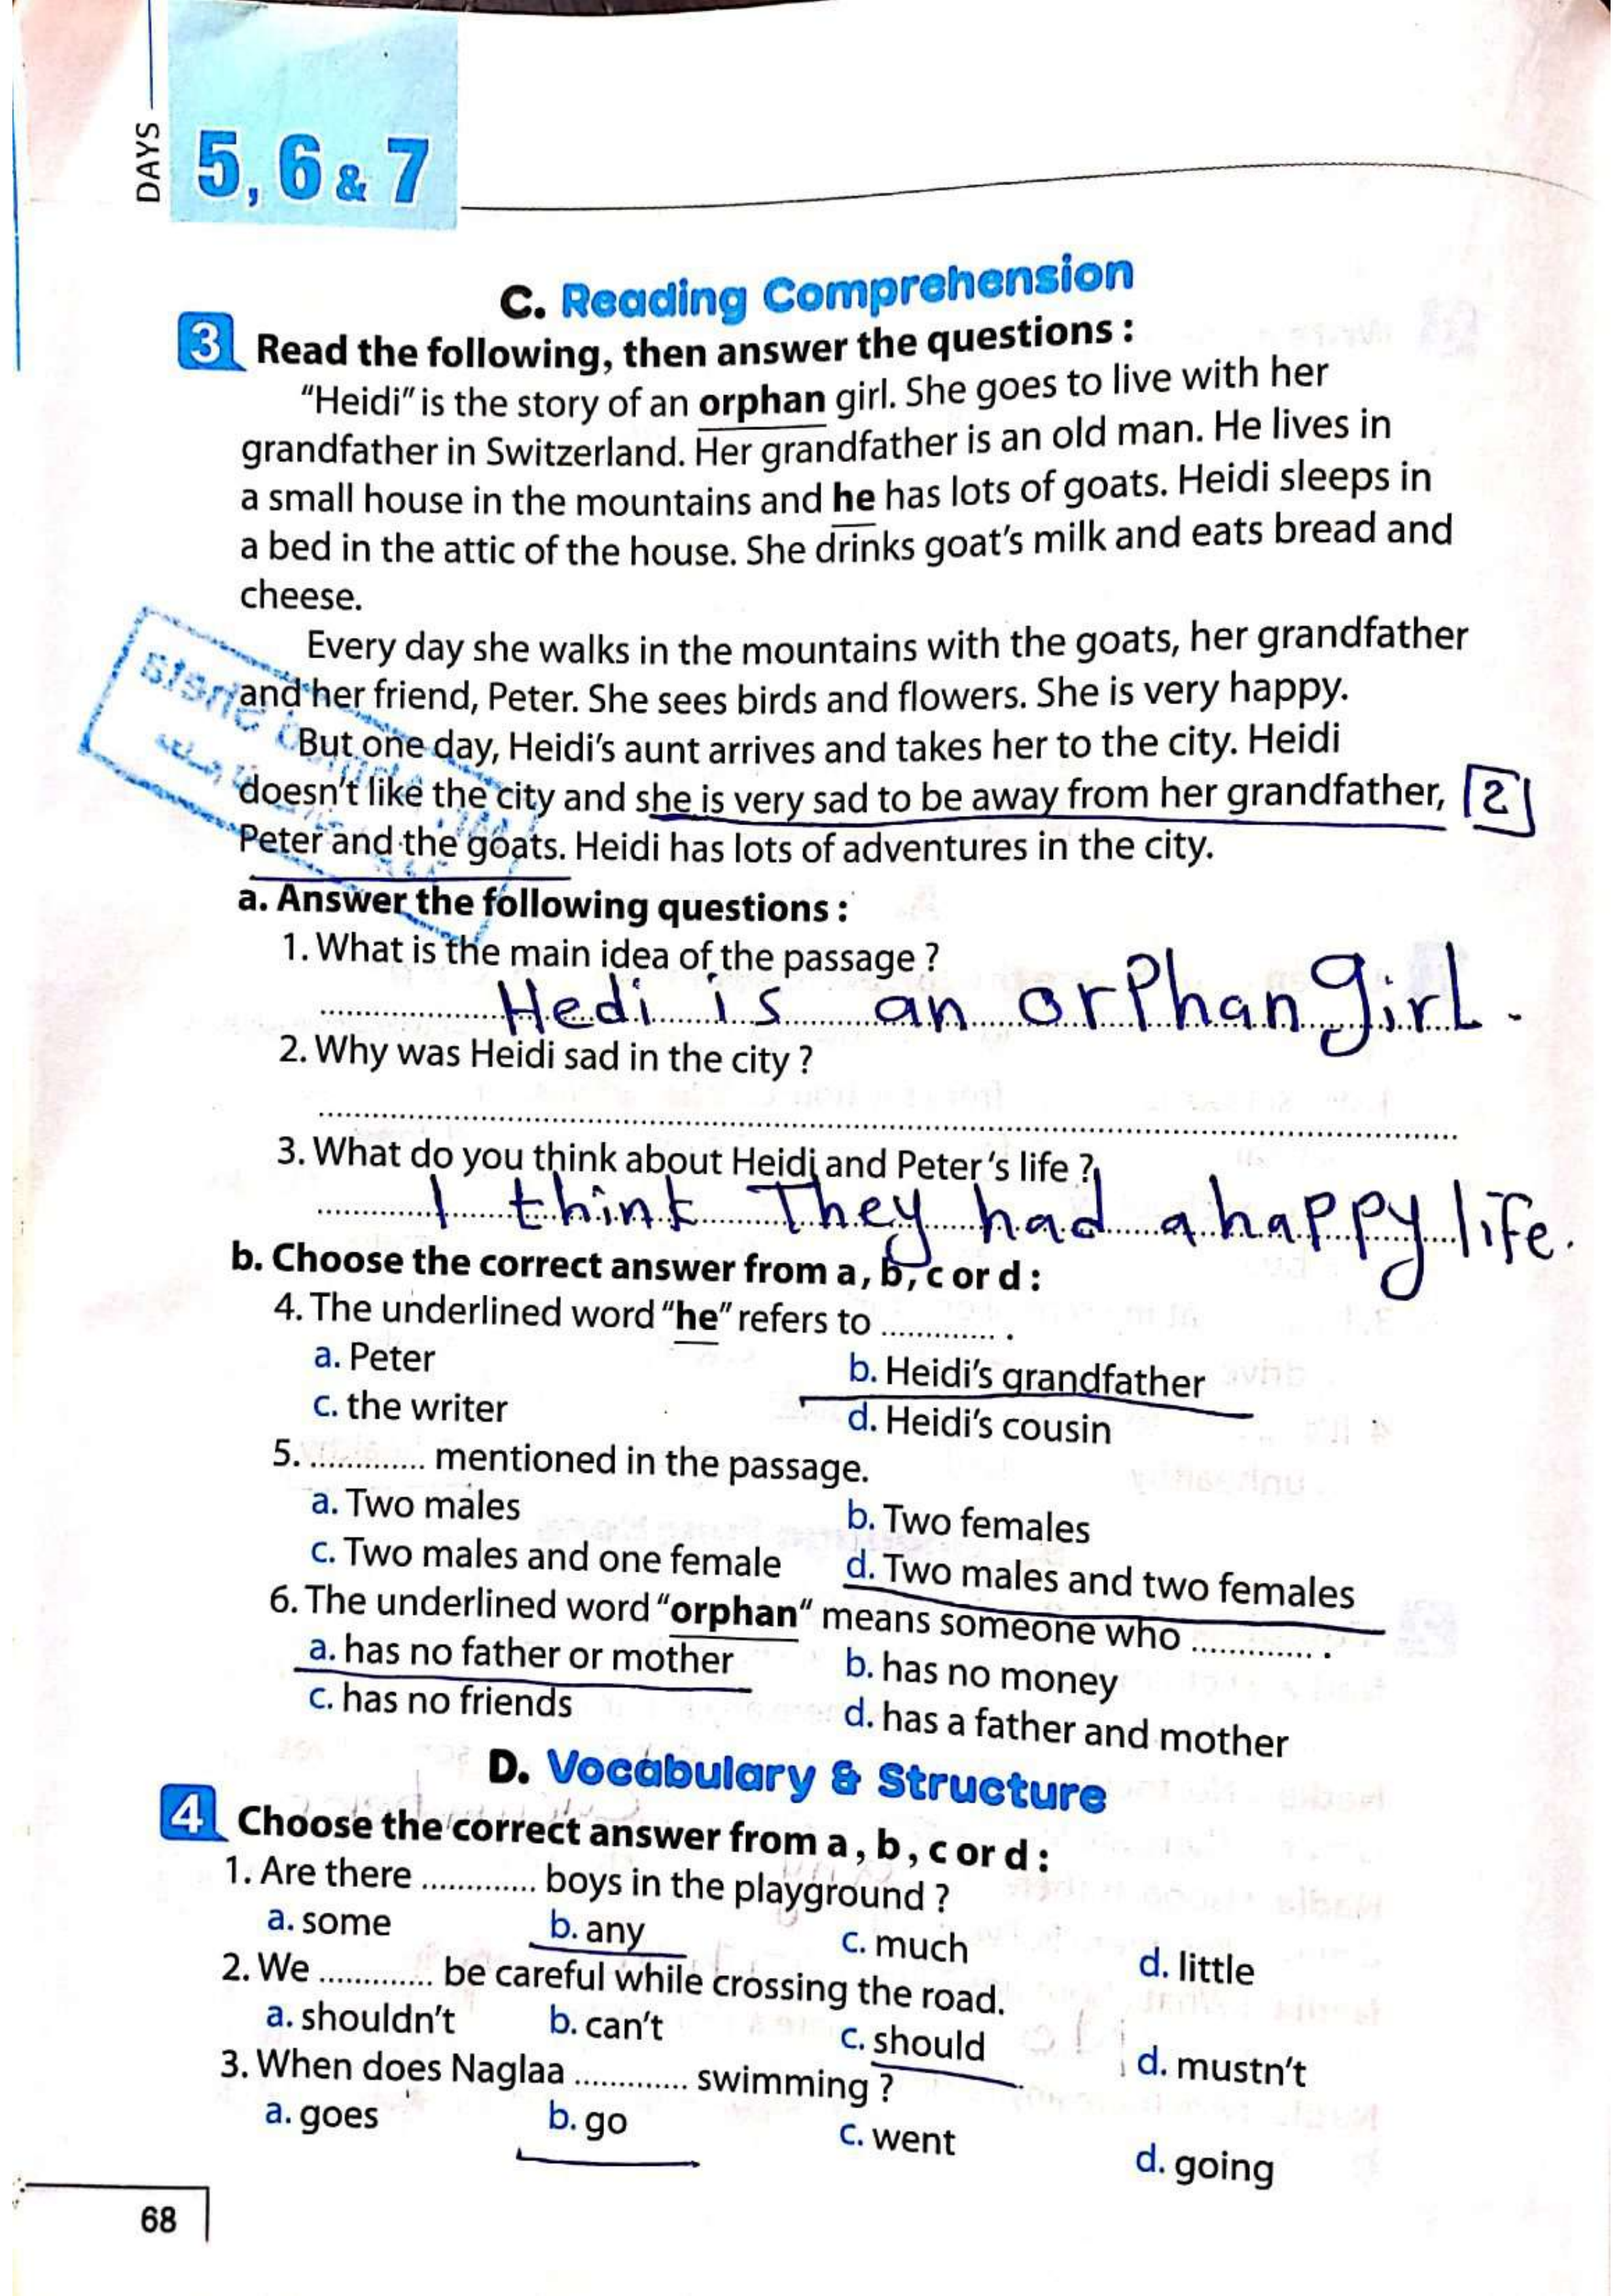 DAYS
5, 6 & 7
C. Reading Comprehension
3 Read the following, then answer the questions :
"Heidi" is the story of an orphan girl. She goes to live with her
grandfather in Switzerland. Her grandfather is an old man. He lives in
a small house in the mountains and he has lots of goats. Heidi sleeps in
a bed in the attic of the house. She drinks goat's milk and eats bread and
cheese.
Every day she walks in the mountains with the goats, her grandfather
and her friend, Peter. She sees birds and flowers. She is very happy.
But one day, Heidi's aunt arrives and takes her to the city. Heidi
doesn't like the city and she is very sad to be away from her grandfather, 2
Peter and the goats. Heidi has lots of adventures in the city.
a. Answer the following questions :
1. What is the main idea of the passage ?
Hedi is an orphan girl.
2. Why was Heidi sad in the city ?
3. What do you think about Heidi and Peter's life ?
I think They had a happy life.
b. Choose the correct answer from a, b, c or d :
4. The underlined word "he" refers to ............. .
a. Peter b. Heidi's grandfather
c. the writer d. Heidi's cousin
5. ............. mentioned in the passage.
a. Two males b. Two females
c. Two males and one female d. Two males and two females
6. The underlined word "orphan" means someone who ............. .
a. has no father or mother b. has no money
c. has no friends d. has a father and mother
D. Vocabulary & Structure
4 Choose the correct answer from a, b, c or d :
1. Are there ............. boys in the playground ?
a. some b. any c. much d. little
2. We ............. be careful while crossing the road.
a. shouldn't b. can't c. should d. mustn't
3. When does Naglaa ............. swimming ?
a. goes b. go c. went d. going
68